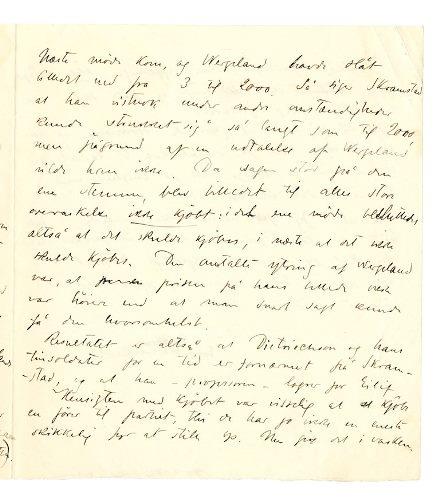 Næste møde kom, og Wergeland havde slåt
billedet ned fra 3 til 2000. Så siger Skramstad
at han vistnok under andre omstændigheder
kunde "strukket sig" så langt som til 2000
men på grund af en udtalelse af Wergeland
vilde han ikke. Da sagen stod på den
ene stemme, blev billedet til alles store
overraskelse ikke kjøbt: i det ene møde besluttedes
altså at det skulde kjøbes, i næste at det ikke
skulde kjøbes. Den omtalte ytring af Wergeland
var, at prisen på hans billede ikke
var høiere end at man snart sagt kunde
få den hvorsomhelst.
Resultatet er altså at Dietrichson og hans
tinsoldater for en tid er fornærmet på Skram-
-stad, og at han - professoren - for Eilif
Hensigten med kjøbet var visselig at kjøbe
en fører til partiet, thi de har jo ikke en eneste
skikkelig for at stille op. Men gik det i vasken.